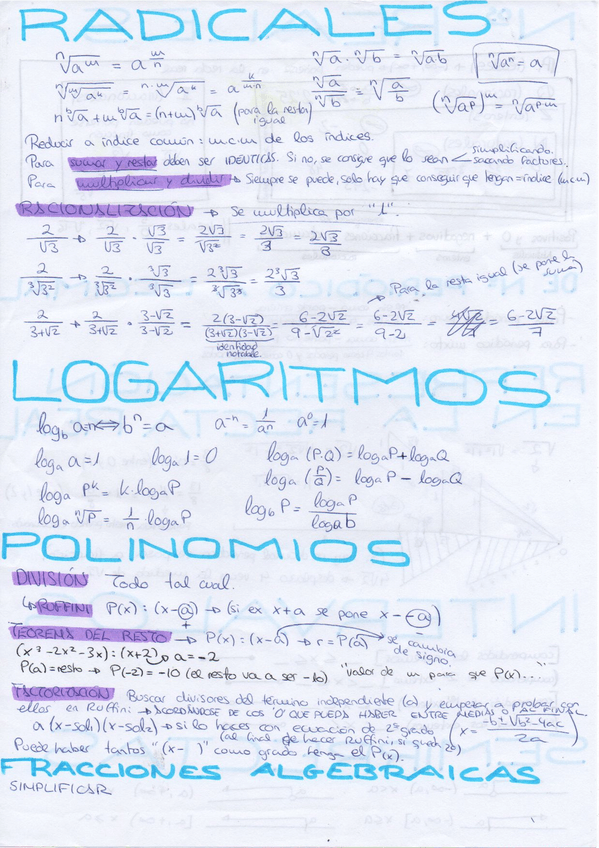 RADICALES
ⁿ√aᵐ = a^(m/n)
ⁿ√a · ⁿ√b = ⁿ√ab
ⁿ√aⁿ = a
ⁿ√a / ⁿ√b = ⁿ√(a/b)
(ⁿ√aᵖ)ᵐ = ⁿ√aᵖ·ᵐ
(para la resta igual)
Reducir a índice común: mcm de los índices.
Para sumar y restar deben ser IDÉNTICAS. Si no, se consigue que lo sean < simplificando. sacando factores.
Para multiplicar y dividir → Siempre se puede, solo hay que conseguir que tengan = índice (mcm)
RACIONALIZACIÓN → Se multiplica por "1".
2/√3 → 2/√3 · √3/√3 = 2√3/√3² = 2√3/3 = 2√3/3
Para la resta igual (se pone la suma)
2/(3+√2) → 2/(3+√2) · (3-√2)/(3-√2) = 2(3-√2)/((3+√2)(3-√2)) = (6-2√2)/(9-√2²) = (6-2√2)/(9-2) = (6-2√2)/7
identidad notable
LOGARITMOS
log_b a=n ⟺ bⁿ = a a⁻ⁿ = 1/aⁿ a⁰ = 1
logₐ a = 1 logₐ 1 = 0 logₐ (P·Q) = logₐP + logₐQ
logₐ Pᵏ = k·logₐP logₐ (P/Q) = logₐP - logₐQ
logₐ ⁿ√P = 1/n logₐP log_b P = logₐP / logₐb
POLINOMIOS
DIVISIÓN Todo tal cual.
↳ RUFFINI P(x) : (x-a) → (si es x+a se pone x - -a)
TEOREMA DEL RESTO → P(x) : (x-a) → r = P(a) se cambia de signo.
(x³-2x²-3x) : (x+2) → a = -2
P(a) = resto → P(-2) = -10 (el resto va a ser -10) "valor de m para que P(x)..."
FACTORIZACIÓN Buscar divisores del término independiente (a) y empezar a probar con
ellos en Ruffini → ACORDÁNDOSE DE LOS "0" QUE PUEDA HABER ENTRE MEDIAS O AL FINAL.
a (x-sol₁)(x-sol₂) → si lo haces con ecuación de 2º grado (x = (-b±√(b²-4ac))/2a)
(al final de hacer Ruffini, si queda 2º)
Puede haber tantos "(x- )" como grado tenga el P(x).
FRACCIONES ALGEBRAICAS
SIMPLIFICAR